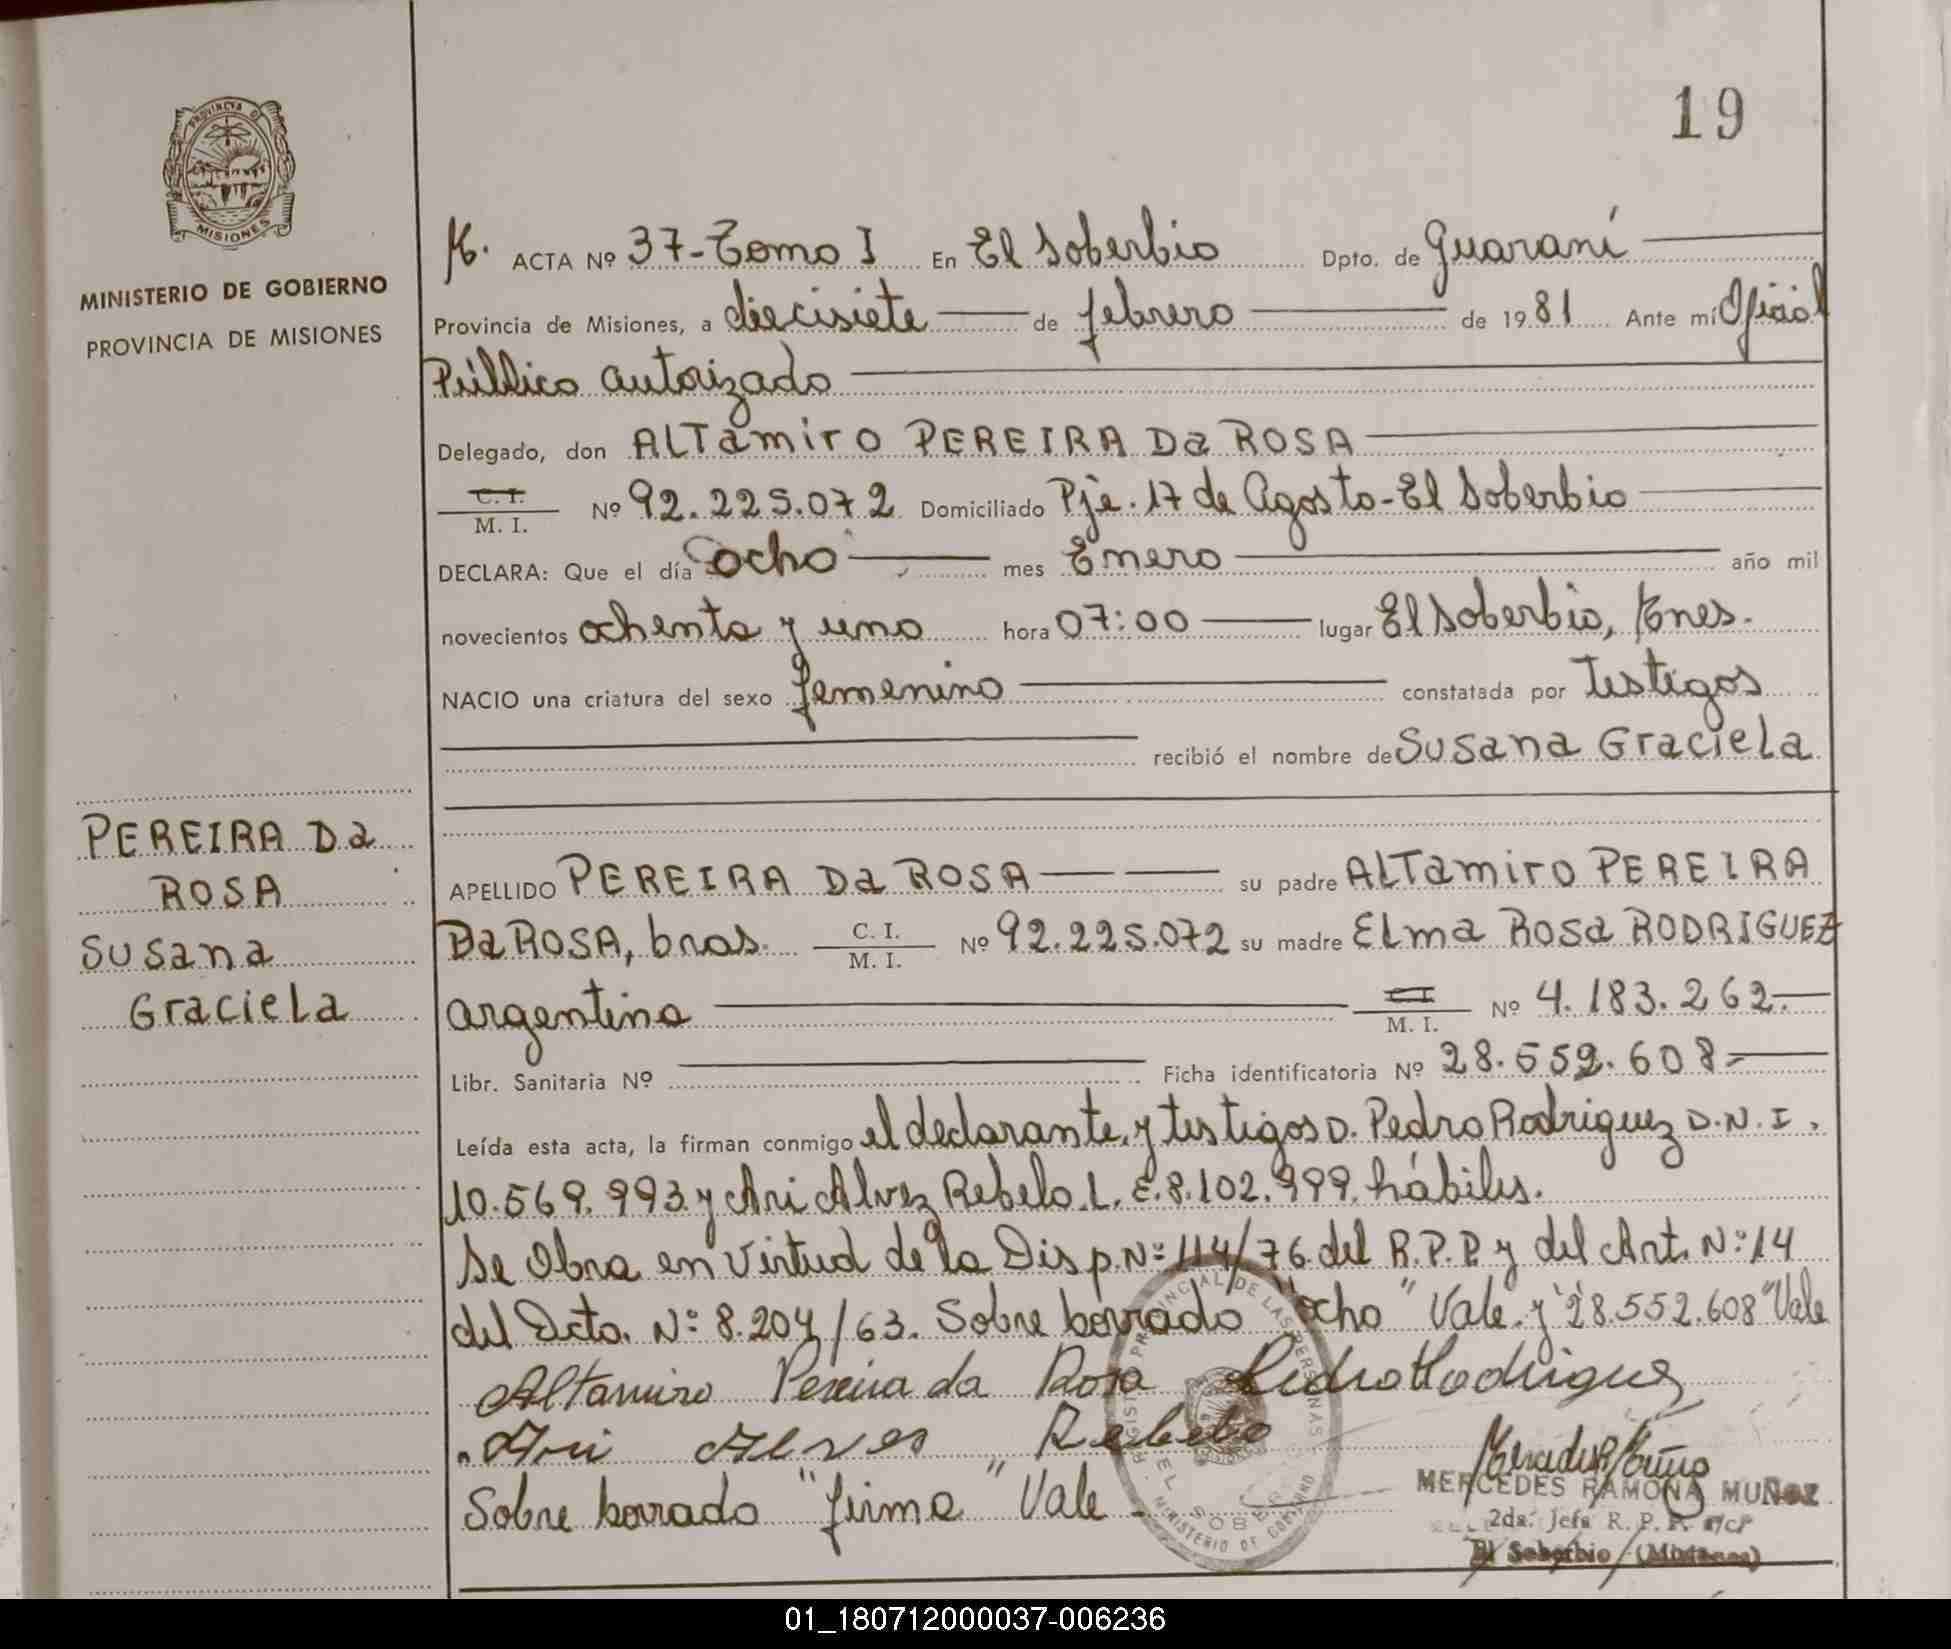 19
PROVINCIA DE
MISIONES
MINISTERIO DE GOBIERNO
PROVINCIA DE MISIONES
ACTA Nº 37-Tomo I En El Soberbio Dpto. de Guaraní
Provincia de Misiones, a diecisiete de febrero de 1981 Ante mí Oficial
Público autorizado
Delegado, don ALTamiro PEREIRA Da ROSA
C. I.
M. I. Nº 92.225.072 Domiciliado Pje. 17 de Agosto-El Soberbio
DECLARA: Que el día ocho mes Enero año mil
novecientos ochenta y uno hora 07:00 lugar El Soberbio, Mnes.
NACIO una criatura del sexo femenino constatada por Testigos
recibió el nombre de Susana Graciela
PEREIRA Da
ROSA
Susana
Graciela
APELLIDO PEREIRA Da ROSA su padre ALTamiro PEREIRA
Da ROSA, bras. C. I. M. I. Nº 92.225.072 su madre Elma Rosa RODRIGUEZ
argentina C I M. I. Nº 4.183.262.
Libr. Sanitaria Nº Ficha identificatoria Nº 28.552.608=
Leída esta acta, la firman conmigo el declarante, y testigos D. Pedro Rodriguez D.N.I.
10.569.993 y Ari Alvez Rebelo L.E. 8.102.999, hábiles.
Se Obra en Virtud de la Disp. Nº: 114/76 del R.P.P. y del Art. Nº: 14
del Dcto. Nº: 8.204/63. Sobre borrado "ocho" Vale y "28.552.608" Vale
Altamiro Pereira da Rosa Pedro Rodriguez
Ari Alves Rebelo
Sobre borrado "firma" Vale.
REGISTRO PROVINCIAL DE LAS PERSONAS
MINISTERIO DE GOBIERNO
MERCEDES RAMONA MUÑOZ
2da. Jefa R. P. P.
El Soberbio (Misiones)
01_180712000037-006236